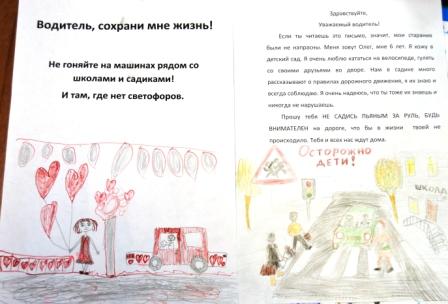 Водитель, сохрани мне жизнь!
Не гоняйте на машинах рядом со
школами и садиками!
И там, где нет светофоров.
Здравствуйте,
Уважаемый водитель!
Если ты читаешь это письмо, значит, мои старания
были не напрасны. Меня зовут Олег, мне 6 лет. Я хожу в
детский сад. Я очень люблю кататься на велосипеде, гулять
со своими друзьями во дворе. Нам в садике много
рассказывают о правилах дорожного движения, я их знаю и
всегда соблюдаю. Я очень надеюсь, что ты тоже их знаешь и
никогда не нарушаешь.
Прошу тебя НЕ САДИСЬ ПЬЯНЫМ ЗА РУЛЬ, БУДЬ
ВНИМАТЕЛЕН на дороге, что бы в жизни твоей не
происходило. Тебя и всех нас ждут дома.
ОСТОРОЖНО
ДЕТИ!
ШКОЛА